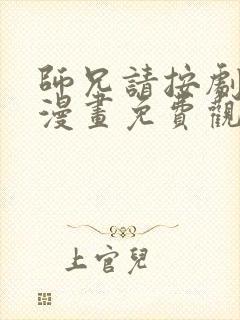 師兄請按劇
漫畫免費觀
上官兒